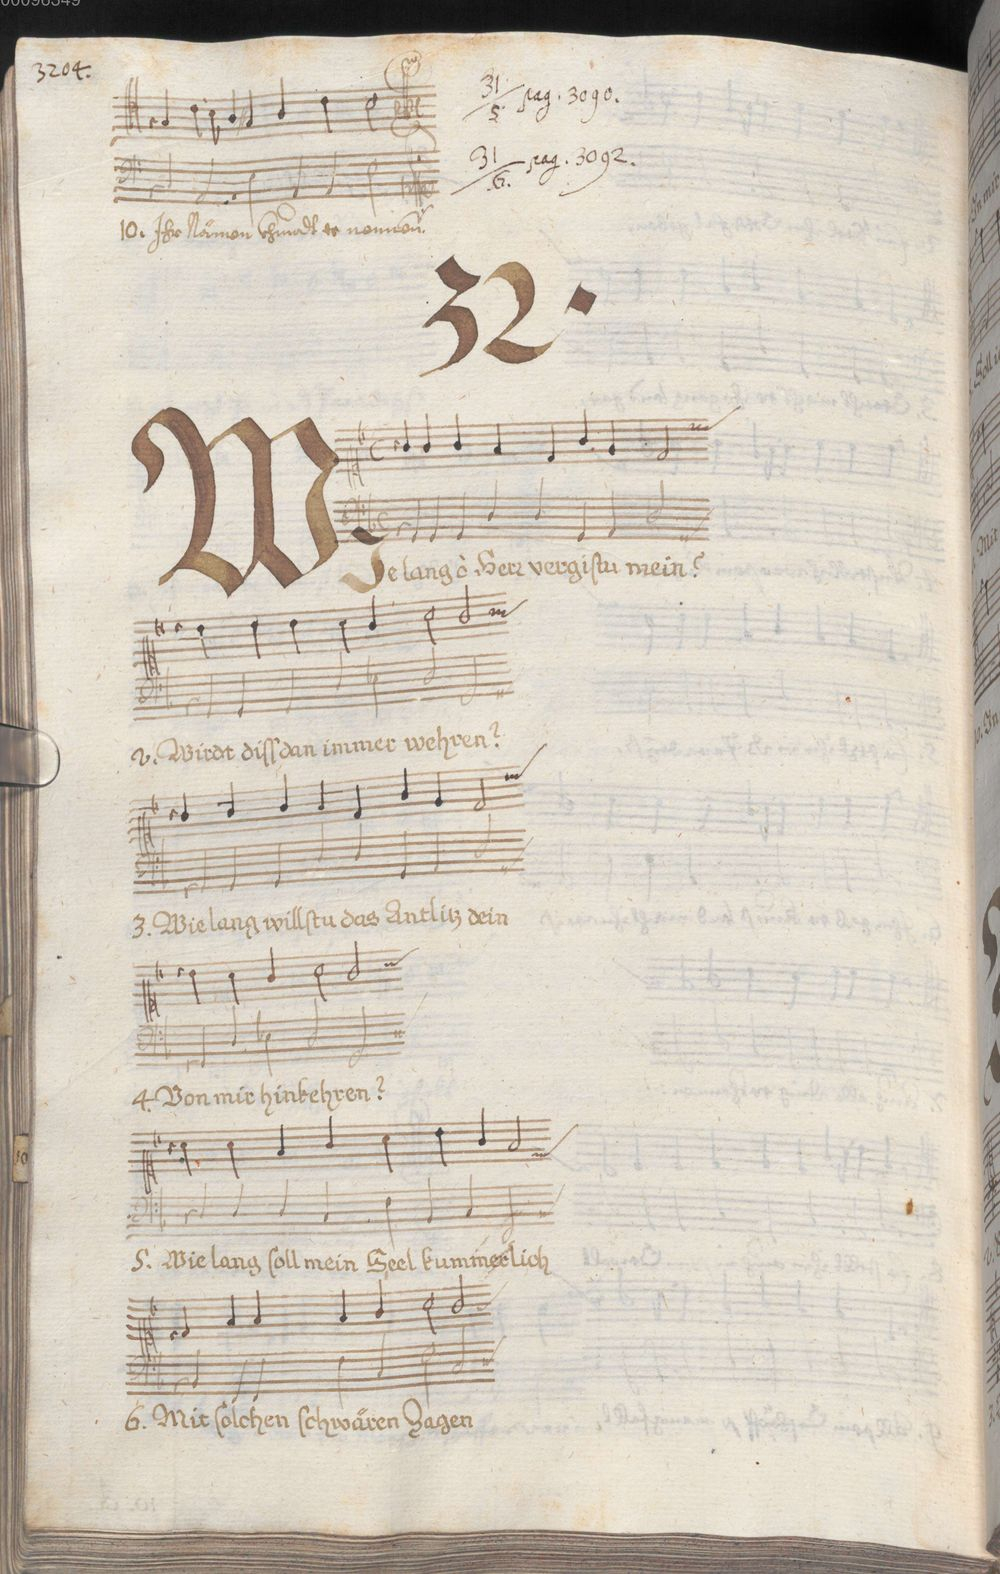 00096349
3204.
31/5 pag. 3090.
31/6. pag. 3092.
10. Ihr Nämen er nennen
32.
Wie lang ò Herr vergistu mein?
2. Wirdt diss dan immer wehren?
3. Wie lang willstu das Antlitz dein
4. Von mir hinkehren?
5. Wie lang soll mein Seel kummerlich
6. Mit solchen schwären Zagen